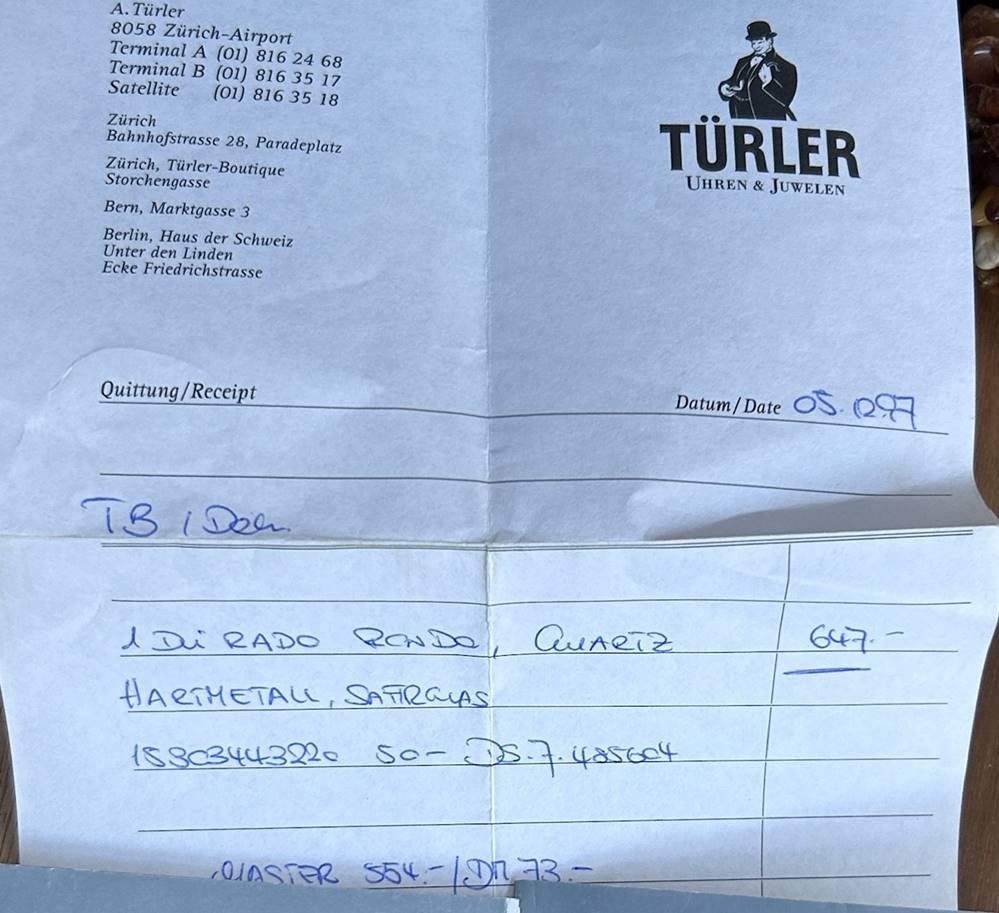 A. Türler
8058 Zürich-Airport
Terminal A (01) 816 24 68
Terminal B (01) 816 35 17
Satellite (01) 816 35 18
Zürich
Bahnhofstrasse 28, Paradeplatz
Zürich, Türler-Boutique
Storchengasse
Bern, Marktgasse 3
Berlin, Haus der Schweiz
Unter den Linden
Ecke Friedrichstrasse
TÜRLER
UHREN & JUWELEN
Quittung/Receipt
Datum/Date 05.12.97
TB /
1 DU RADO RONDO, QUARTZ 647.-
HARTMETALL, SAFIRGLAS
15303443220 50- DS.7.485604
MASTER 554.- / DM 73.-